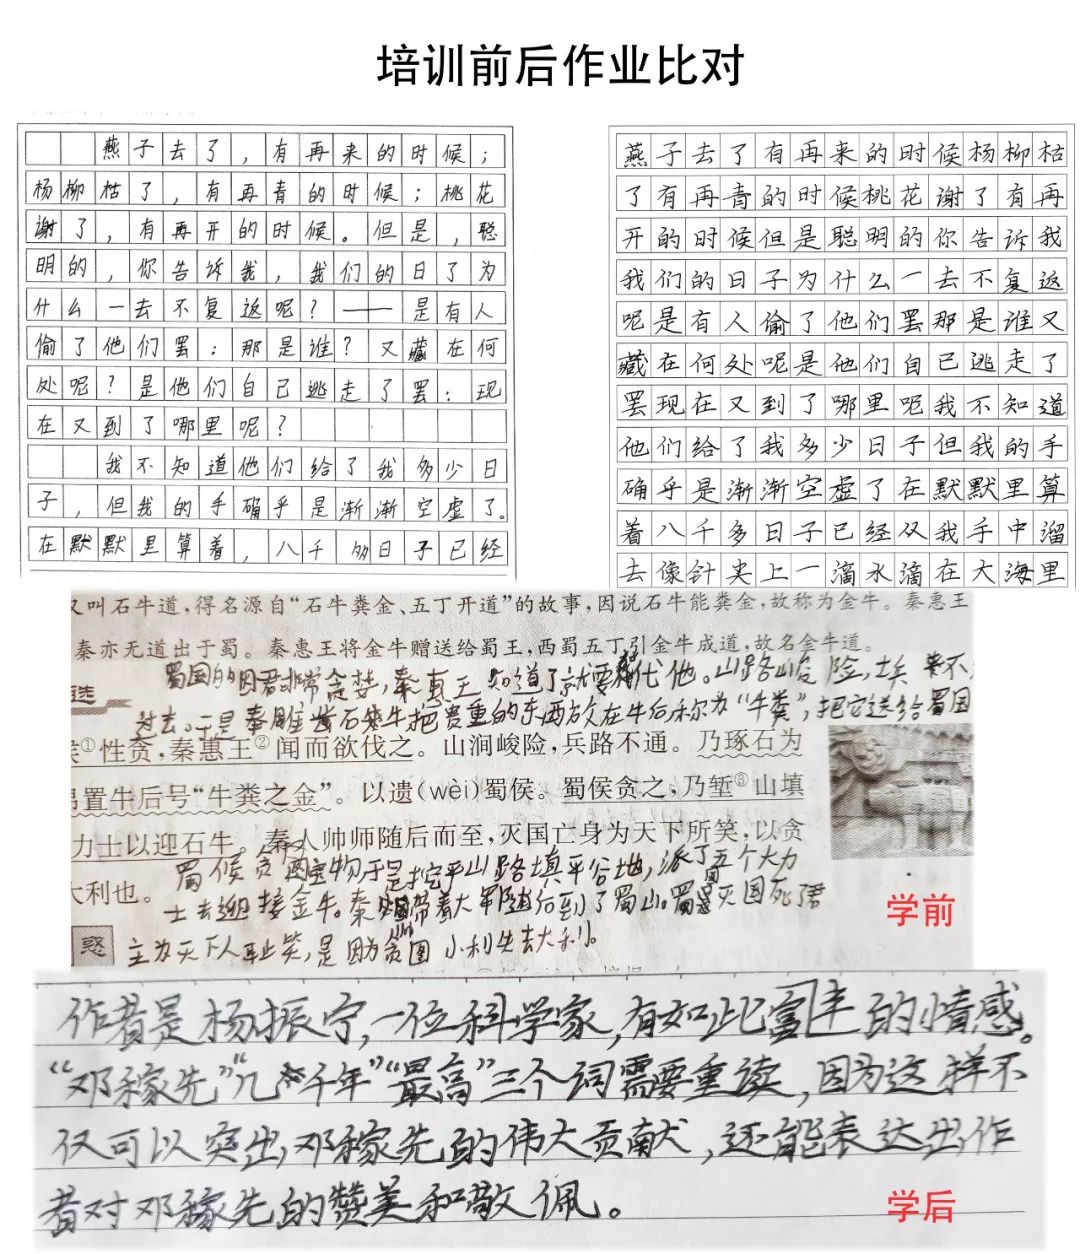 培训前后作业比对
燕子去了，有再来的时候；
杨柳枯了，有再青的时候；桃花
谢了，有再开的时候。但是，聪
明的，你告诉我，我们的日子为
什么一去不复返呢？——是有人
偷了他们罢：那是谁？又藏在何
处呢？是他们自己逃走了罢：现
在又到了哪里呢？
我不知道他们给了我多少日
子，但我的手确乎是渐渐空虚了。
在默默里算着，八千多日子已经
燕子去了有再来的时候杨柳枯
了有再青的时候桃花谢了有再
开的时候但是聪明的你告诉我
我们的日子为什么一去不复返
呢是有人偷了他们罢那是谁又
藏在何处呢是他们自己逃走了
罢现在又到了哪里呢我不知道
他们给了我多少日子但我的手
确乎是渐渐空虚了在默默里算
着八千多日子已经从我手中溜
去像针尖上一滴水滴在大海里
又叫石牛道，得名源自“石牛粪金、五丁开道”的故事，因说石牛能粪金，故称为金牛。秦惠王
秦亦无道出于蜀。秦惠王将金牛赠送给蜀王，西蜀五丁引金牛成道，故名金牛道。
蜀国的国君非常贪婪，秦惠王知道了就要伐他。山路险，
过去。于是秦雕凿石牛把贵重的东西放在牛后称为“牛粪”，把它送给蜀国
侯①性贪，秦惠王②闻而欲伐之。山涧峻险，兵路不通。乃琢石为
置牛后号“牛粪之金”。以遗(wèi)蜀侯。蜀侯贪之，乃堑③山填
力士以迎石牛。秦人帅师随后而至，灭国亡身为天下所笑，以贪
大利也。
蜀侯贪图宝物于是挖平山路填平谷地，派了五个大力
士去迎接金牛。秦国带着大军随后到了蜀山。蜀国灭国死了君
惑
主为天下人耻笑，是因为贪图小利失去大利。
学前
作者是杨振宁，一位科学家，有如此富丰的情感。
“邓稼先”“几千年”“最高”三个词需要重读，因为这样不
仅可以突出邓稼先的伟大贡献，还能表达出作
者对邓稼先的赞美和敬佩。
学后